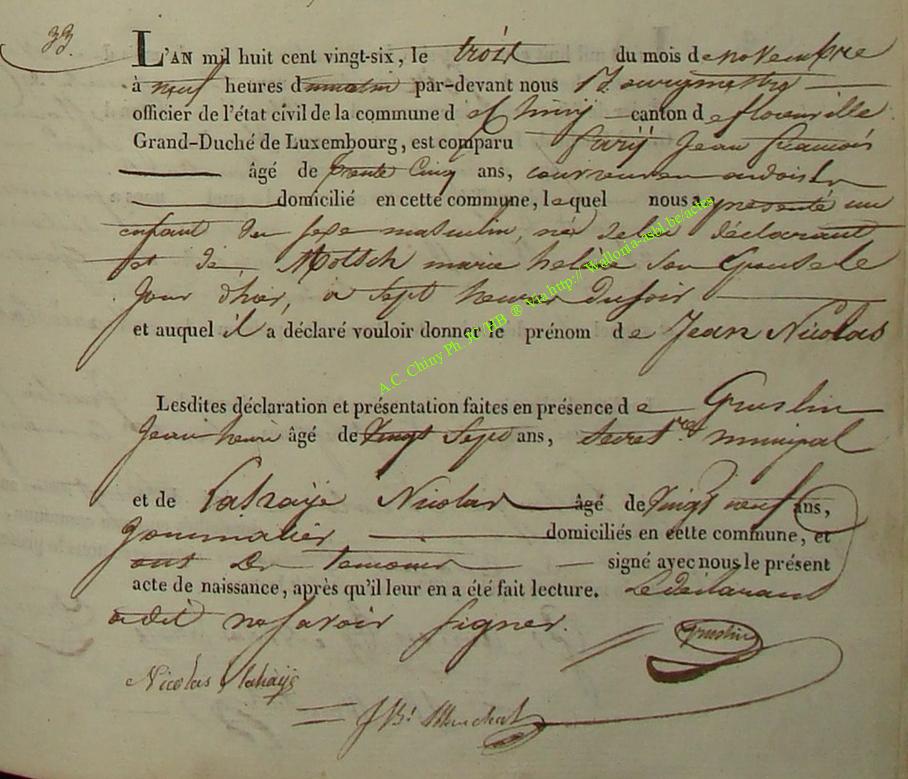 33.
L'AN mil huit cent vingt-six, le trois du mois de novembre
à neuf heures du matin par-devant nous Bourgmestre
officier de l'état civil de la commune d e Chiny canton de florenville
Grand-Duché de Luxembourg, est comparu Parij Jean francois
âgé de trente Cinq ans, couvreur en ardoise
domicilié en cette commune, lequel nous a présenté un
enfant du sexe masculin, né de lui déclarant
et de Motsch marie helène son Epouse le
jour d'hier, a sept heures du soir
et auquel il a déclaré vouloir donner le prénom de Jean Nicolas
A.C. Chiny Ph. JC HB @ Via http:// Wallonia-asbl.be/actes
Lesdites déclaration et présentation faites en présence d e Gruslin
Jean henri âgé de Vingt Sept ans, Secret.re municipal
et de Lahaije Nicolas âgé de Vingt neuf ans,
Journalier domiciliés en cette commune, et
ont les temoins signé avec nous le présent
acte de naissance, après qu'il leur en a été fait lecture. Le déclarant
a dit ne savoir signer.
Gruslin
Nicolas lahaije